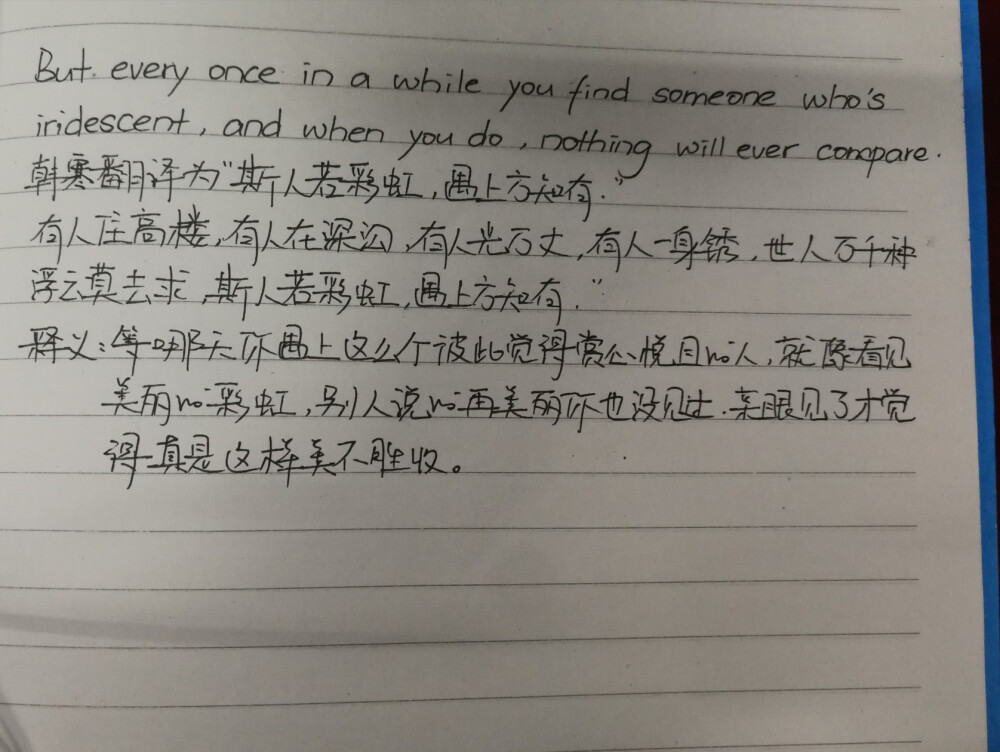 But every once in a while you find someone who's
iridescent, and when you do, nothing will ever compare.
韩寒翻译为"斯人若彩虹,遇上方知有."
有人住高楼,有人在深沟,有人光万丈,有人一身锈,世人万千种
浮云莫去求,斯人若彩虹,遇上方知有."
释义:等哪天你遇上这么个彼此觉得赏心悦目的人,就像看见
美丽的彩虹,别人说的再美丽你也没见过.亲眼见了才觉
得真是这样美不胜收。